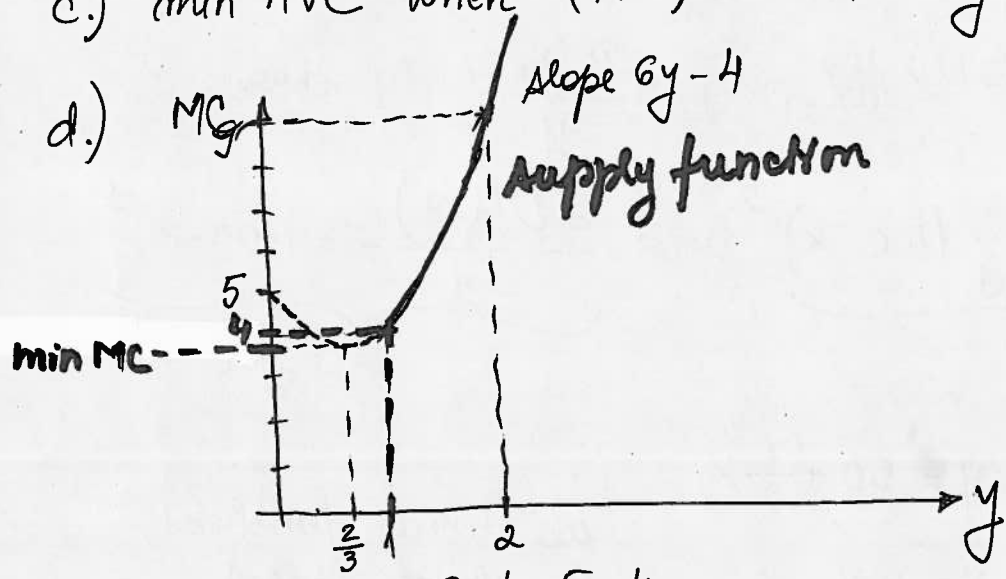 c.) min AVC when (
y
slope 6y-4
d.) MC
9
supply function
5
4
min MC
2/3 1 2 y